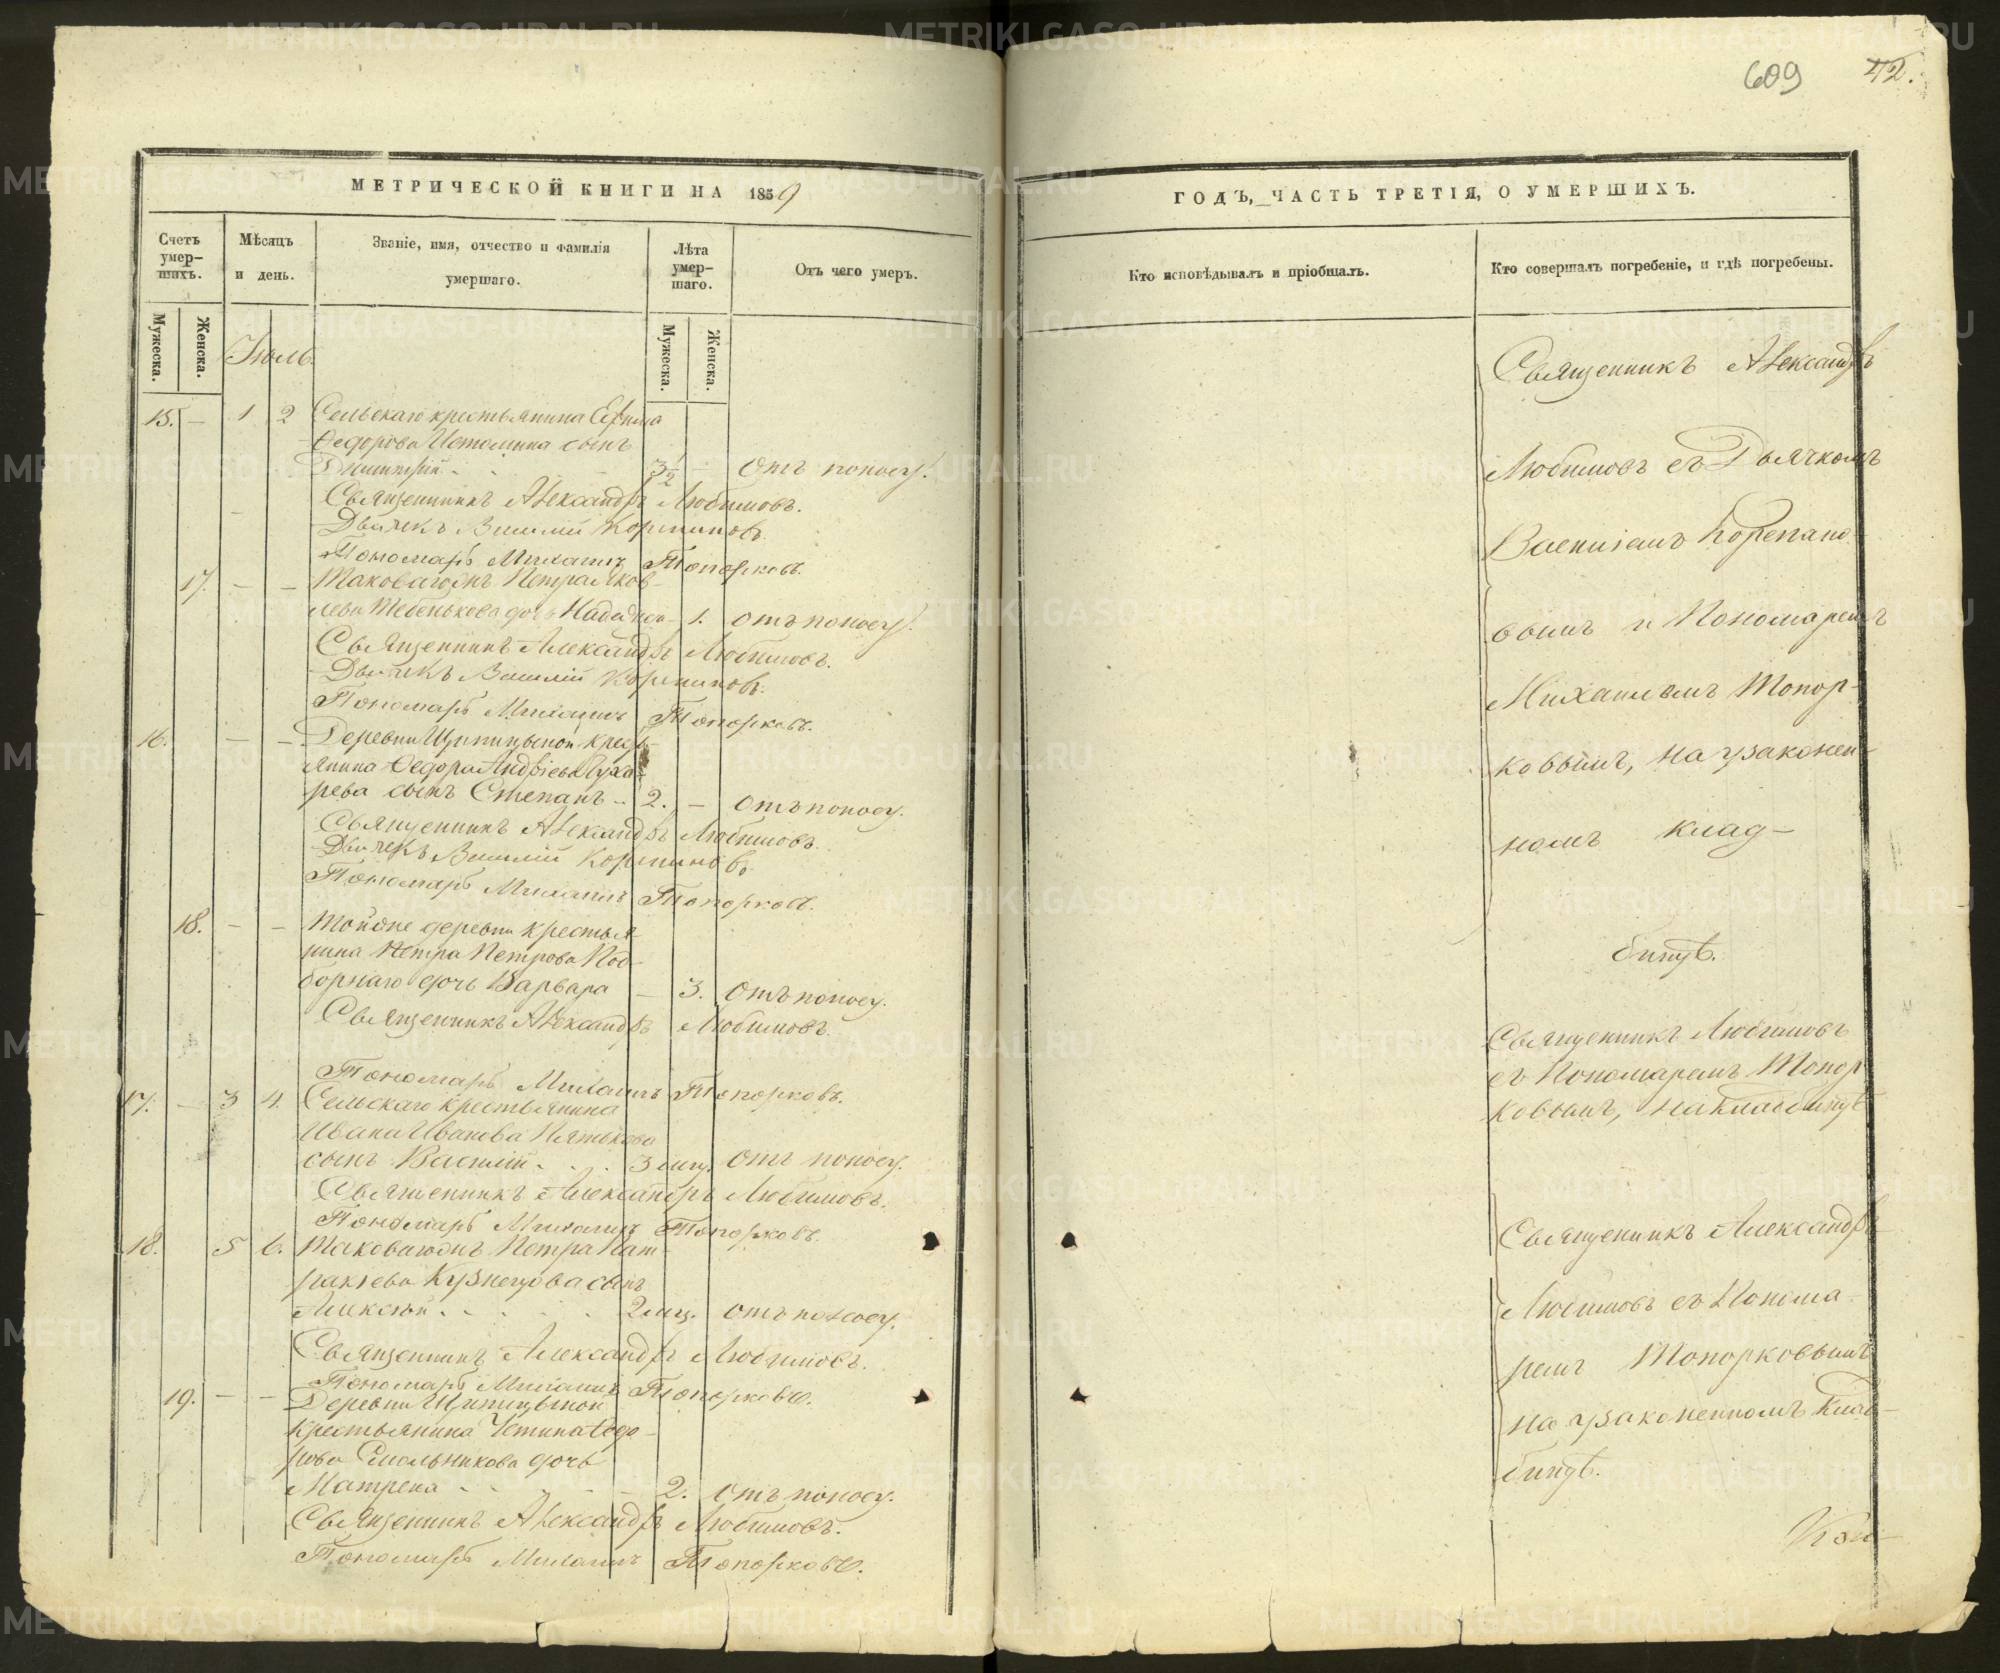 609 42.
МЕТРИЧЕСКОЙ КНИГИ НА 1859
Счетъ умер-шихъ.
Мѣсяцъ и день.
Званіе, имя, отчество и фамилія умершаго.
Лѣта умер-шаго.
Отъ чего умеръ.
Мужеска.
Женска.
Мужеска.
Женска.
Іюль.
15. — 1 2 Сельскаго крестьянина Ефима
Ѳедорова Истомина сынъ
Димитрій 3½ — Отъ поносу.
Священникъ Александръ Любимовъ.
Дьячекъ Василій
Пономарь Михаилъ Топорковъ.
17. — — Таковагожъ Петра Яков-
лева Тебенькова дочь Надежда 1. отъ поносу.
Священникъ Александръ Любимовъ.
Дьячекъ Василій
Пономарь Михаилъ Топорковъ.
16. — — Деревни Щипицыной кресть-
янина Ѳедора Андріева
рева сынъ Степанъ 2. — отъ поносу.
Священникъ Александръ Любимовъ.
Дьячекъ Василій
Пономарь Михаилъ Топорковъ.
18. — — Тойже деревни крестья
нина Петра Петрова Под-
борнаго дочь Варвара — 3. Отъ поносу.
Священникъ Александръ Любимовъ.
Пономарь Михаилъ Топорковъ.
17. — 3 4. Сельскаго крестьянина
Ивана Иванова Пятькова
сынъ Василій 3 мѣц. Отъ поносу.
Священникъ Александръ Любимовъ.
Пономарь Михаилъ Топорковъ.
18. 5 6. Таковагожъ Петра Пат-
ракѣева Кузнецова сынъ
Алексѣй 2 мѣц. отъ поносу.
Священникъ Александръ Любимовъ.
Пономарь Михаилъ Топорковъ.
19. — — Деревни Щипицыной
крестьянина Устина Ѳедо-
рова Смольникова дочь
Матрена — 2. отъ поносу.
Священникъ Александръ Любимовъ.
Пономарь Михаилъ Топорковъ.
ГОДЪ, ЧАСТЬ ТРЕТІЯ, О УМЕРШИХЪ.
Кто исповѣдывалъ и пріобщалъ.
Кто совершалъ погребеніе, и гдѣ погребены.
Священникъ Александръ
Любимовъ съ Дьячкомъ
Василіемъ Корепано
вымъ и Пономаремъ
Михаиломъ Топор-
ковымъ, на узаконен-
номъ клад-
бищѣ.
Священникъ Любимовъ
съ Пономаремъ Топор
ковымъ, на кладбищѣ
Священникъ Александръ
Любимовъ съ Понома-
ремъ Топорковымъ
на узаконенномъ клад-
бищѣ.
METRIKI.GASO-URAL.RU